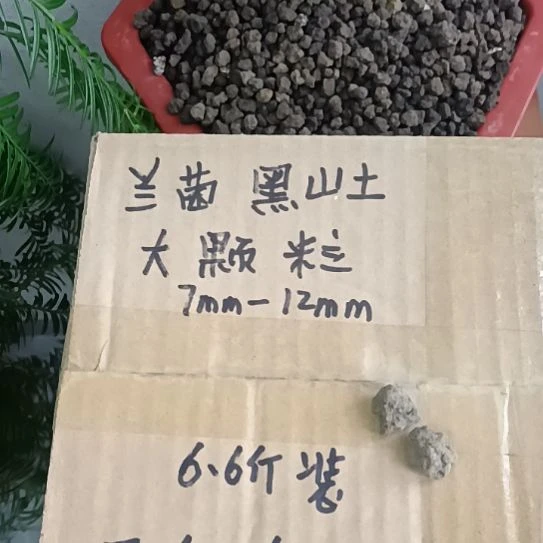 兰菌 黑山土
大颗粒
7mm-12mm
6.6斤装